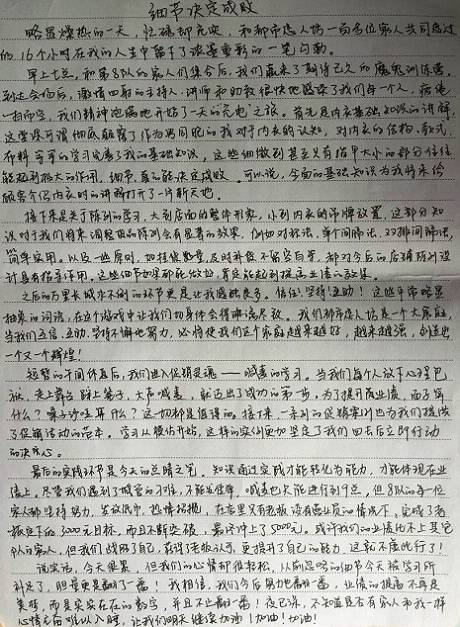 细节决定成败
略显燥热的一天,忙碌却充实,和都市恋人坊一百多位家人共同度过
的16个小时在我的人生中留下了浓墨重彩的一笔
早上七点,和第8队的家人们集合后,我们赢来了期待已久的魔鬼训练营。
到达会场后,激情四射的主持人、讲师和助教很快感染了我们每一个人,疲倦
一扫而空,我们精神饱满地开始了一天的充电之旅。首先是内衣基础知识的讲解,
这堂课可谓彻底颠覆了作为男同胞的我对内衣的认知,对内衣的结构、款式、
布料等等的学习完善了我的基础知识,这些细微到甚至只有指甲大小的部分往往
能起到极大的作用。细节,真的能决定成败。可以说,今日的基础知识为我将来给
顾客介绍内衣时的讲解打开了一片新天地。
接下来是关于陈列的学习,大到店面的整体形象,小到内衣的吊牌放置,这部分知
识对于我们将来调整货品陈列会有显著的效果,例如对称法、单个间隔法、双排间隔法,
简单实用。以及一些原则,如挂装数量,及时补货不留空白等,都对今后的店铺陈列设
计具有指导作用。这些细节如果都能做好,肯定能起到提高业绩的效果。
之后的万里长城永不倒的环节更是让我感触良多。信任!坚持!互助!这些平常略显
抽象的词语,在这个游戏中让我们切身体会得淋漓尽致。我们都市恋人坊是一个大家庭,
当我们互信、互助、坚持不懈地努力,必将使我们这个家庭越来越好,越来越强,创造出
一个又一个辉煌!
短暂的午间休息后,我们进入促销灵魂——喊麦的学习。当我们每个人放下心理包
袱,走上舞台,踏上椅子,大声喊麦,就迈出了成功的第一步。为了提升流业绩,面子算
什么?嗓子沙哑算什么?这一切都是值得的。接下来,一系列的促销案例也为我们提供
了促销活动的范本。学习从模仿开始,这样的实例更加坚定了我们回去后立即行动
的决心。
最后的实践环节是今天的点睛之笔。知识通过实践才能转化为能力,才能体现在业
绩上。尽管我们遇到了城管的刁难,不能发传单,喊麦也只能进行到9点,但8队的每一位
家人都坚持努力,发放传单,热情招揽,在店里只有老板没有营业员的情况下,完成了老
板定下的3000元目标,而且不断突破,最终冲上了5000元。或许我们的业绩比不上其它
队的家人,但我们战胜了自己,获得了老板认可,更提升了自己的能力,这就不虚此行了!
说实话,今天很累,但我们的心情却很轻松,从前忽略的细节今天被学习所
补足了,胆量更是翻了一番!我相信,我们今后努力也翻一番,业绩的提高不再是
美梦,而是实实在在的数字,并且不止翻一番!夜已深,不知道是否有家人和我一样
心情亢奋难以入睡,让我们明天继续加油!加油!加油!